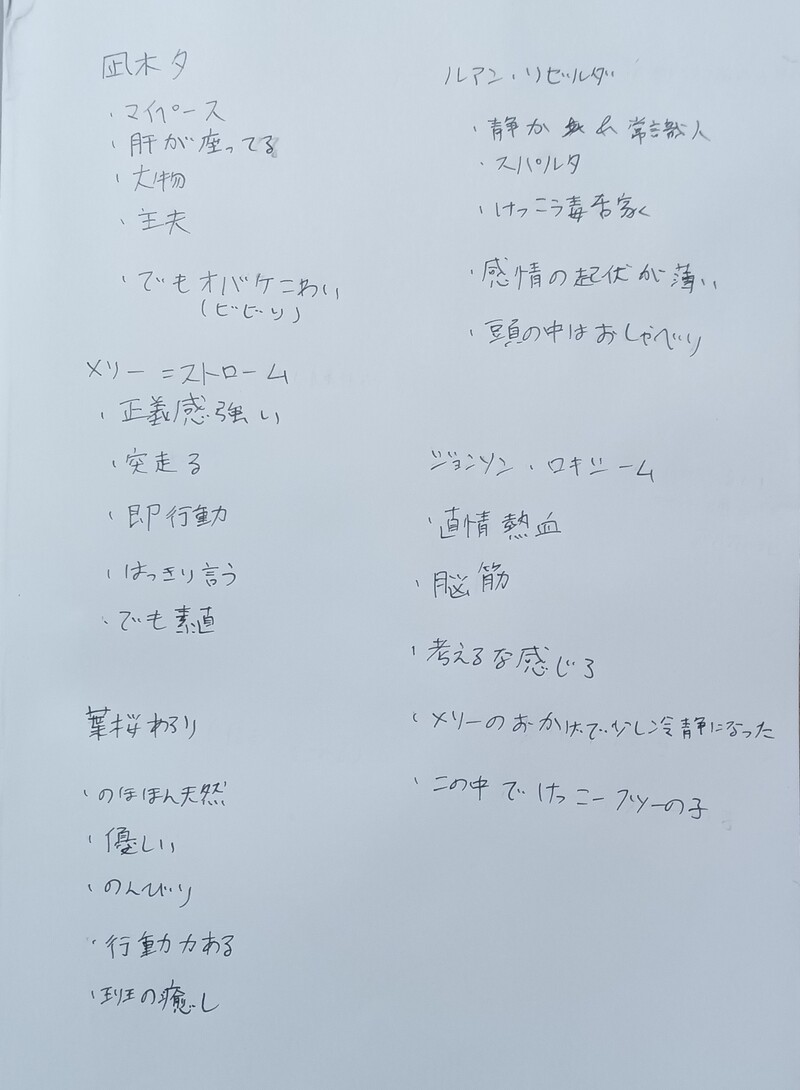 凪木夕
・マイペース
・肝が座ってる
・大物
・主夫
・でもオバケこわい
(ビビリ)
メリー=ストローム
・正義感強い
・突走る
・即行動
・はっきり言う
・でも素直
葉桜わらり
・のほほん天然
・優しい
・のんびり
・行動力ある
・班の癒し
ルアン・リビルダ
・静か 常識人
・スパルタ
・けっこう毒舌家
・感情の起伏が薄い
・頭の中はおしゃべり
ジョンソン・ロキシーム
・直情熱血
・脳筋
・考えるな感じろ
・メリーのおかげで少し冷静になった
・この中でけっこーフツーの子